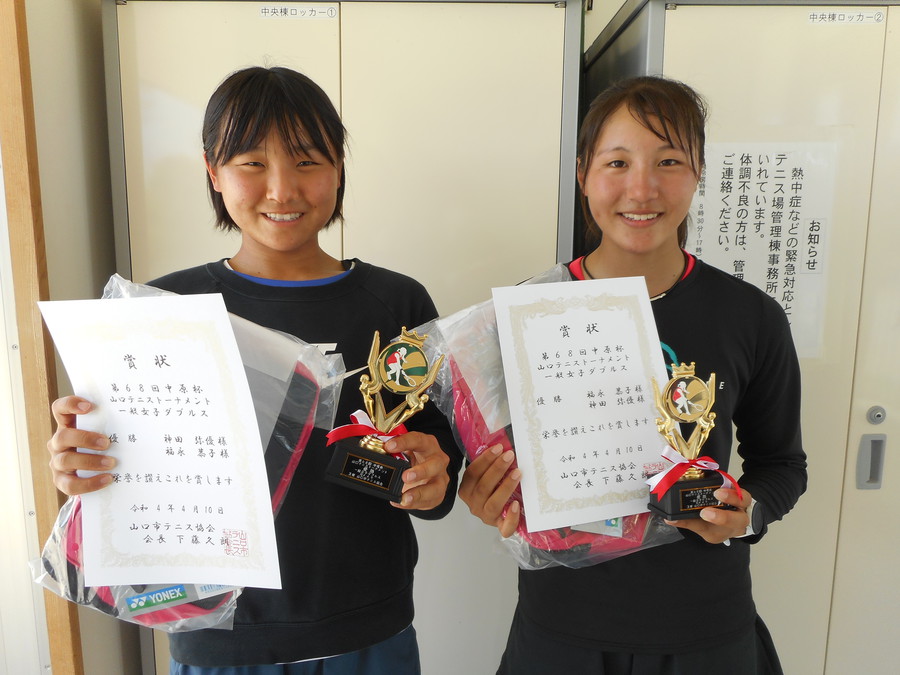 中央棟ロッカー①
中央棟ロッカー②
お知らせ
熱中症などの緊急対応と
テニス場管理棟事務所
いれています。
体調不良の方は、管理
ご連絡ください。
時間 8時30分~17時
賞状
第68回中原杯
山口テニストーナメント
一般女子ダブルス
優勝 神田 弥優様
福永 恵子様
栄誉を讃えこれを賞します
令和4年4月10日
山口市テニス協会
会長 下藤久
YONEX
賞状
第68回中原杯
山口テニストーナメント
一般女子ダブルス
優勝 福永 恵子様
神田 弥優様
栄誉を讃えこれを賞します
令和4年4月10日
山口市テニス協会
会長 下藤久